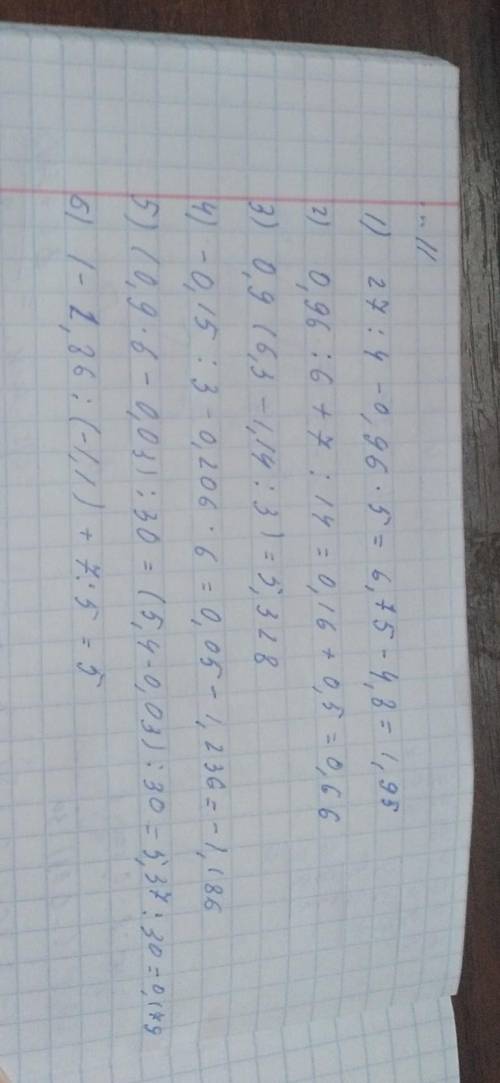 ~ 11
1) 27 : 4 - 0,96 · 5 = 6,75 - 4,8 = 1,95
2) 0,96 : 6 + 7 : 14 = 0,16 + 0,5 = 0,66
3) 0,9 (6,3 - 1,14 : 3) = 5,328
4) - 0,15 : 3 - 0,206 · 6 = 0,05 - 1,236 = - 1,186
5) (0,9 · 6 - 0,03) : 30 = (5,4 - 0,03) : 30 = 5,37 : 30 = 0,179
6) 1 - 2,86 : (-1,1) + 7 : 5 = 5